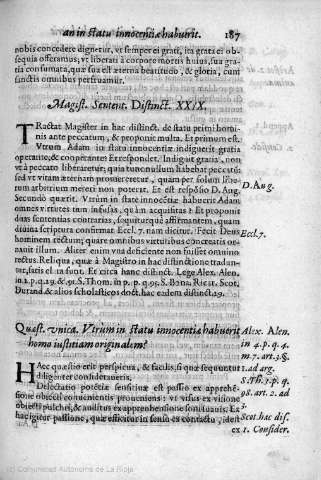 an in statu innocentiæ habuerit. 187
nobis concedere dignetur, vt semper ei grati, ita grati ei ob-
sequia offeramus; vt liberati à corpore mortis huius, sua gra-
tia consumata, quæ sua est æterna beatitudo, & gloria, cum
sanctis omnibus perfruamur.
Magist. Sentent. Distinct. XXIX.
TRactat Magister in hac distinct. de statu primi homi-
nis ante peccatum, & proponit multa. Et primum est.
Vtrum Adam in statu innocentiæ indiguerit gratia
operante, & cooperante? Et respondet. Indiguit gratia, non
vt à peccato liberaretur, quia tunc nullum habebat peccatū
sed vt vitam æternam promereretur, quam per solum libe-
rum arbitrium mereri non poterat. Et est respōsio D. Aug.
D. Aug.
Secundò quærit. Vtrum in state innocētiæ habuerit Adam
omnes virtutes tum infusas, quàm acquisitas? Et proponit
duas sententias contrarias, sequiturque affirmantem, quam
diuina scriptura confirmat Eccl. 7. nam dicitur. Fecit Deus
Eccl. 7.
hominem rectum; quare omnibus virtutibus concreatis or-
nauit illum. Aliter enim vna deficiente non fuisset omnino
rectus. Reliqua, quæ à Magistro in hac distinctione tradun-
tur, satis clara sunt. Et circa hanc distinct. Lege Alex. Alen.
S. Bona. Ricar. Scot.
Durand. & alios scholasticos doct. hac eadem distinct. 29.
Quæst. vnica. Vtrùm in statu innocentiæ habuerit
homo iustitiam originalem?
Alex. Alen.
in 4. p. q. 4.
m. 7. art. 3. §.
1. ad arg.
S. Th. 1. p. q.
98. art. 2. ad
3.
Scot. hac dis.
ex 1. Consider.
HÆc quæstio erit perspicua, & facilis, si quæ sequuntur
diligenter consideraueris.
Delectatio potētiæ sensitiuæ est passio ex apprehē-
sione obiecti conuenientis proueniens: vt visus ex visione
obiecti pulchri, & auditus ex apprehensione soni suauis. Ex
hac igitur passione, quæ efficitur in sensu ex contactu, idest